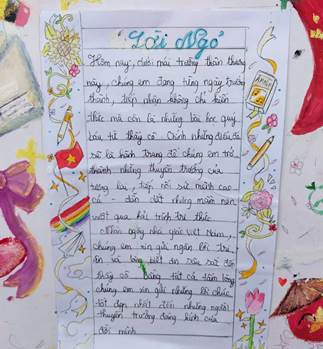 Lời Ngỏ
Hôm nay, dưới mái trường thân thương
này, chúng em đang từng ngày trưởng
thành, tiếp nhận không chỉ kiến
thức mà còn là những bài học quý
báu từ thầy cô. Chính những điều đó
sẽ là hành trang để chúng em trở
thành những thuyền trưởng của
tương lai, tiếp nối sứ mệnh cao
cả - dẫn dắt những mầm non
vượt qua hải trình tri thức.
Nhân ngày nhà giáo Việt Nam,
chúng em xin gửi ngàn lời tri
ân và lòng biết ơn sâu sắc đến
thầy cô bằng tất cả tấm lòng
chúng em xin gửi những lời chúc
tốt đẹp nhất đến những người
thuyền trưởng đáng kính của
đời mình